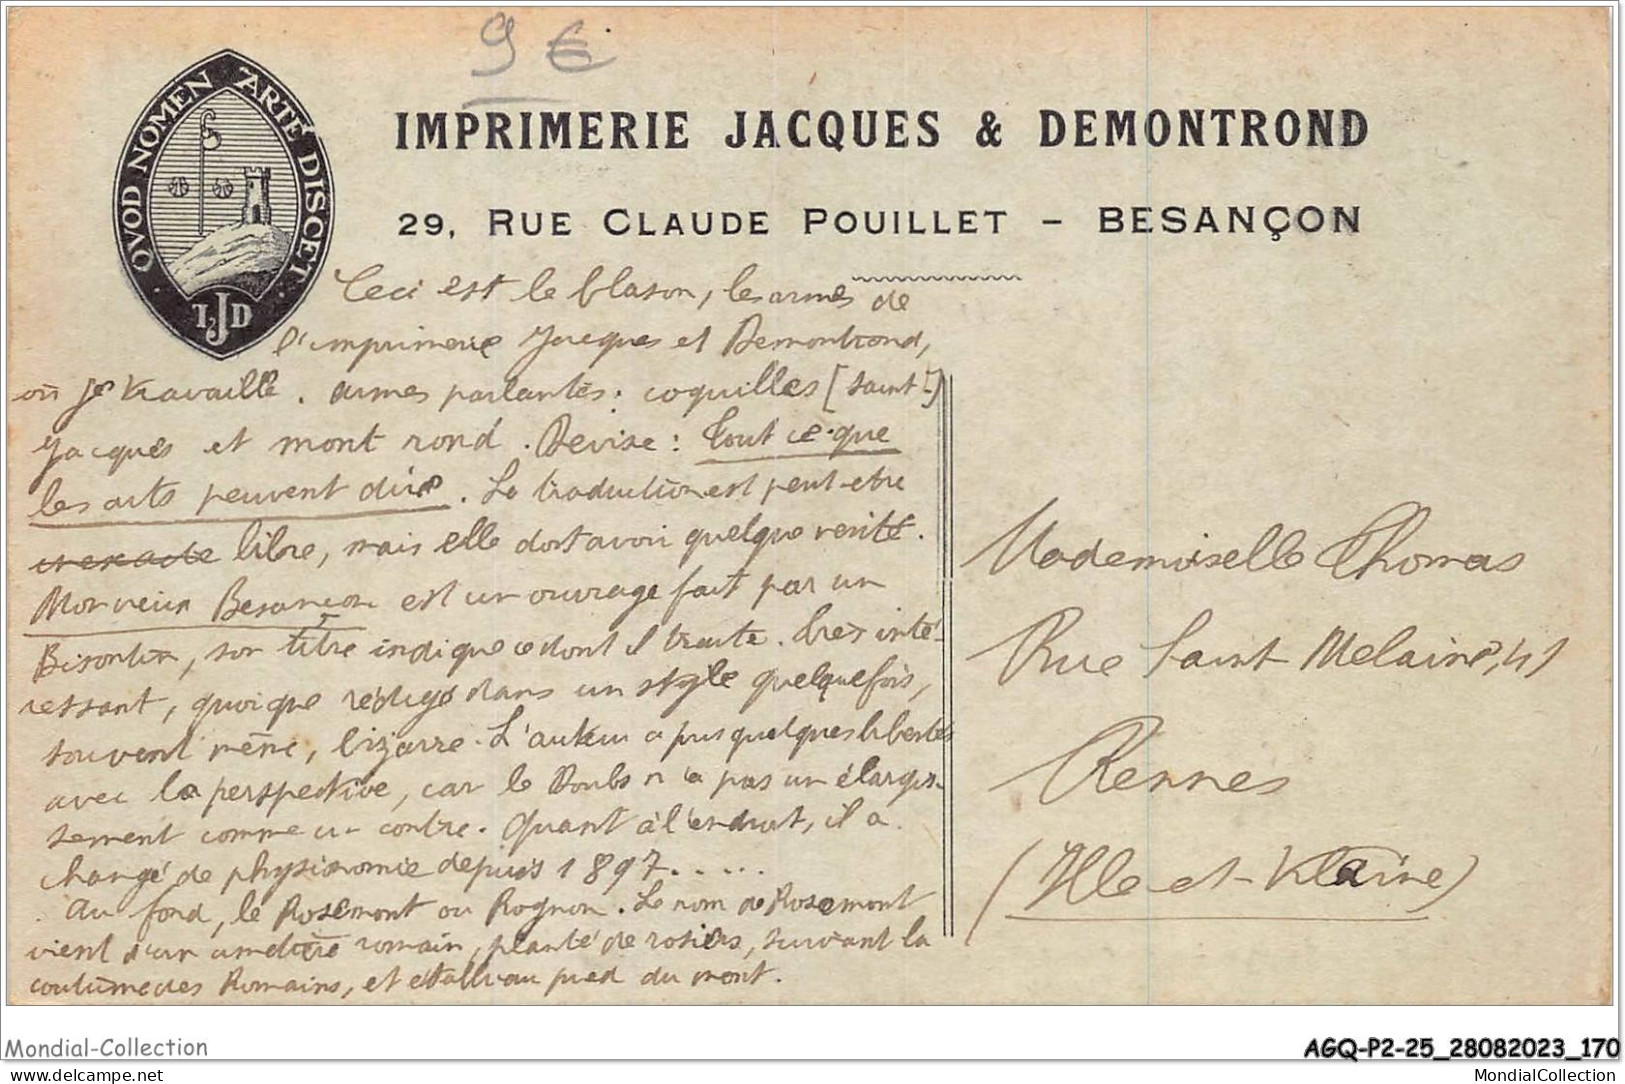 9 €
QVOD NOMEN ARTE DISCET
I & D
J
IMPRIMERIE JACQUES & DEMONTROND
29, RUE CLAUDE POUILLET – BESANÇON
Ceci est le blason, les armes de
l'imprimerie Jacques et Demontrond,
où je travaille. armes parlantes : coquilles [Saint-]
Jacques et mont rond. Devise : Tout ce que
les arts peuvent dire. La traduction est peut-etre
inexacte libre, mais elle doit avoir quelque verité.
Besançon est un ouvrage fait par un
Bisontin, son titre indique ce dont il traite. Très inté-
ressant, quoique rédigé dans un style quelquefois,
souvent même, bizarre. L'auteur a pris quelques libertés
avec la perspective, car le Doubs n'a pas un élargis-
sement comme ci-contre. Quant à l'endroit, il a
changé de physionomie depuis 1897.....
Au fond, le Rosemont ou Rognon. Le nom de Rosemont
vient d'un cimetière romain, planté de rosiers, suivant la
coutume des Romains, et établi au pied du mont.
Mademoiselle Thomas
Rue Saint Melaine, 41
Rennes
(Ille-et-Vilaine)
Mondial-Collection
AGQ-P2-25_28082023_170
mondial-collection.delcampe.net
MondialCollection